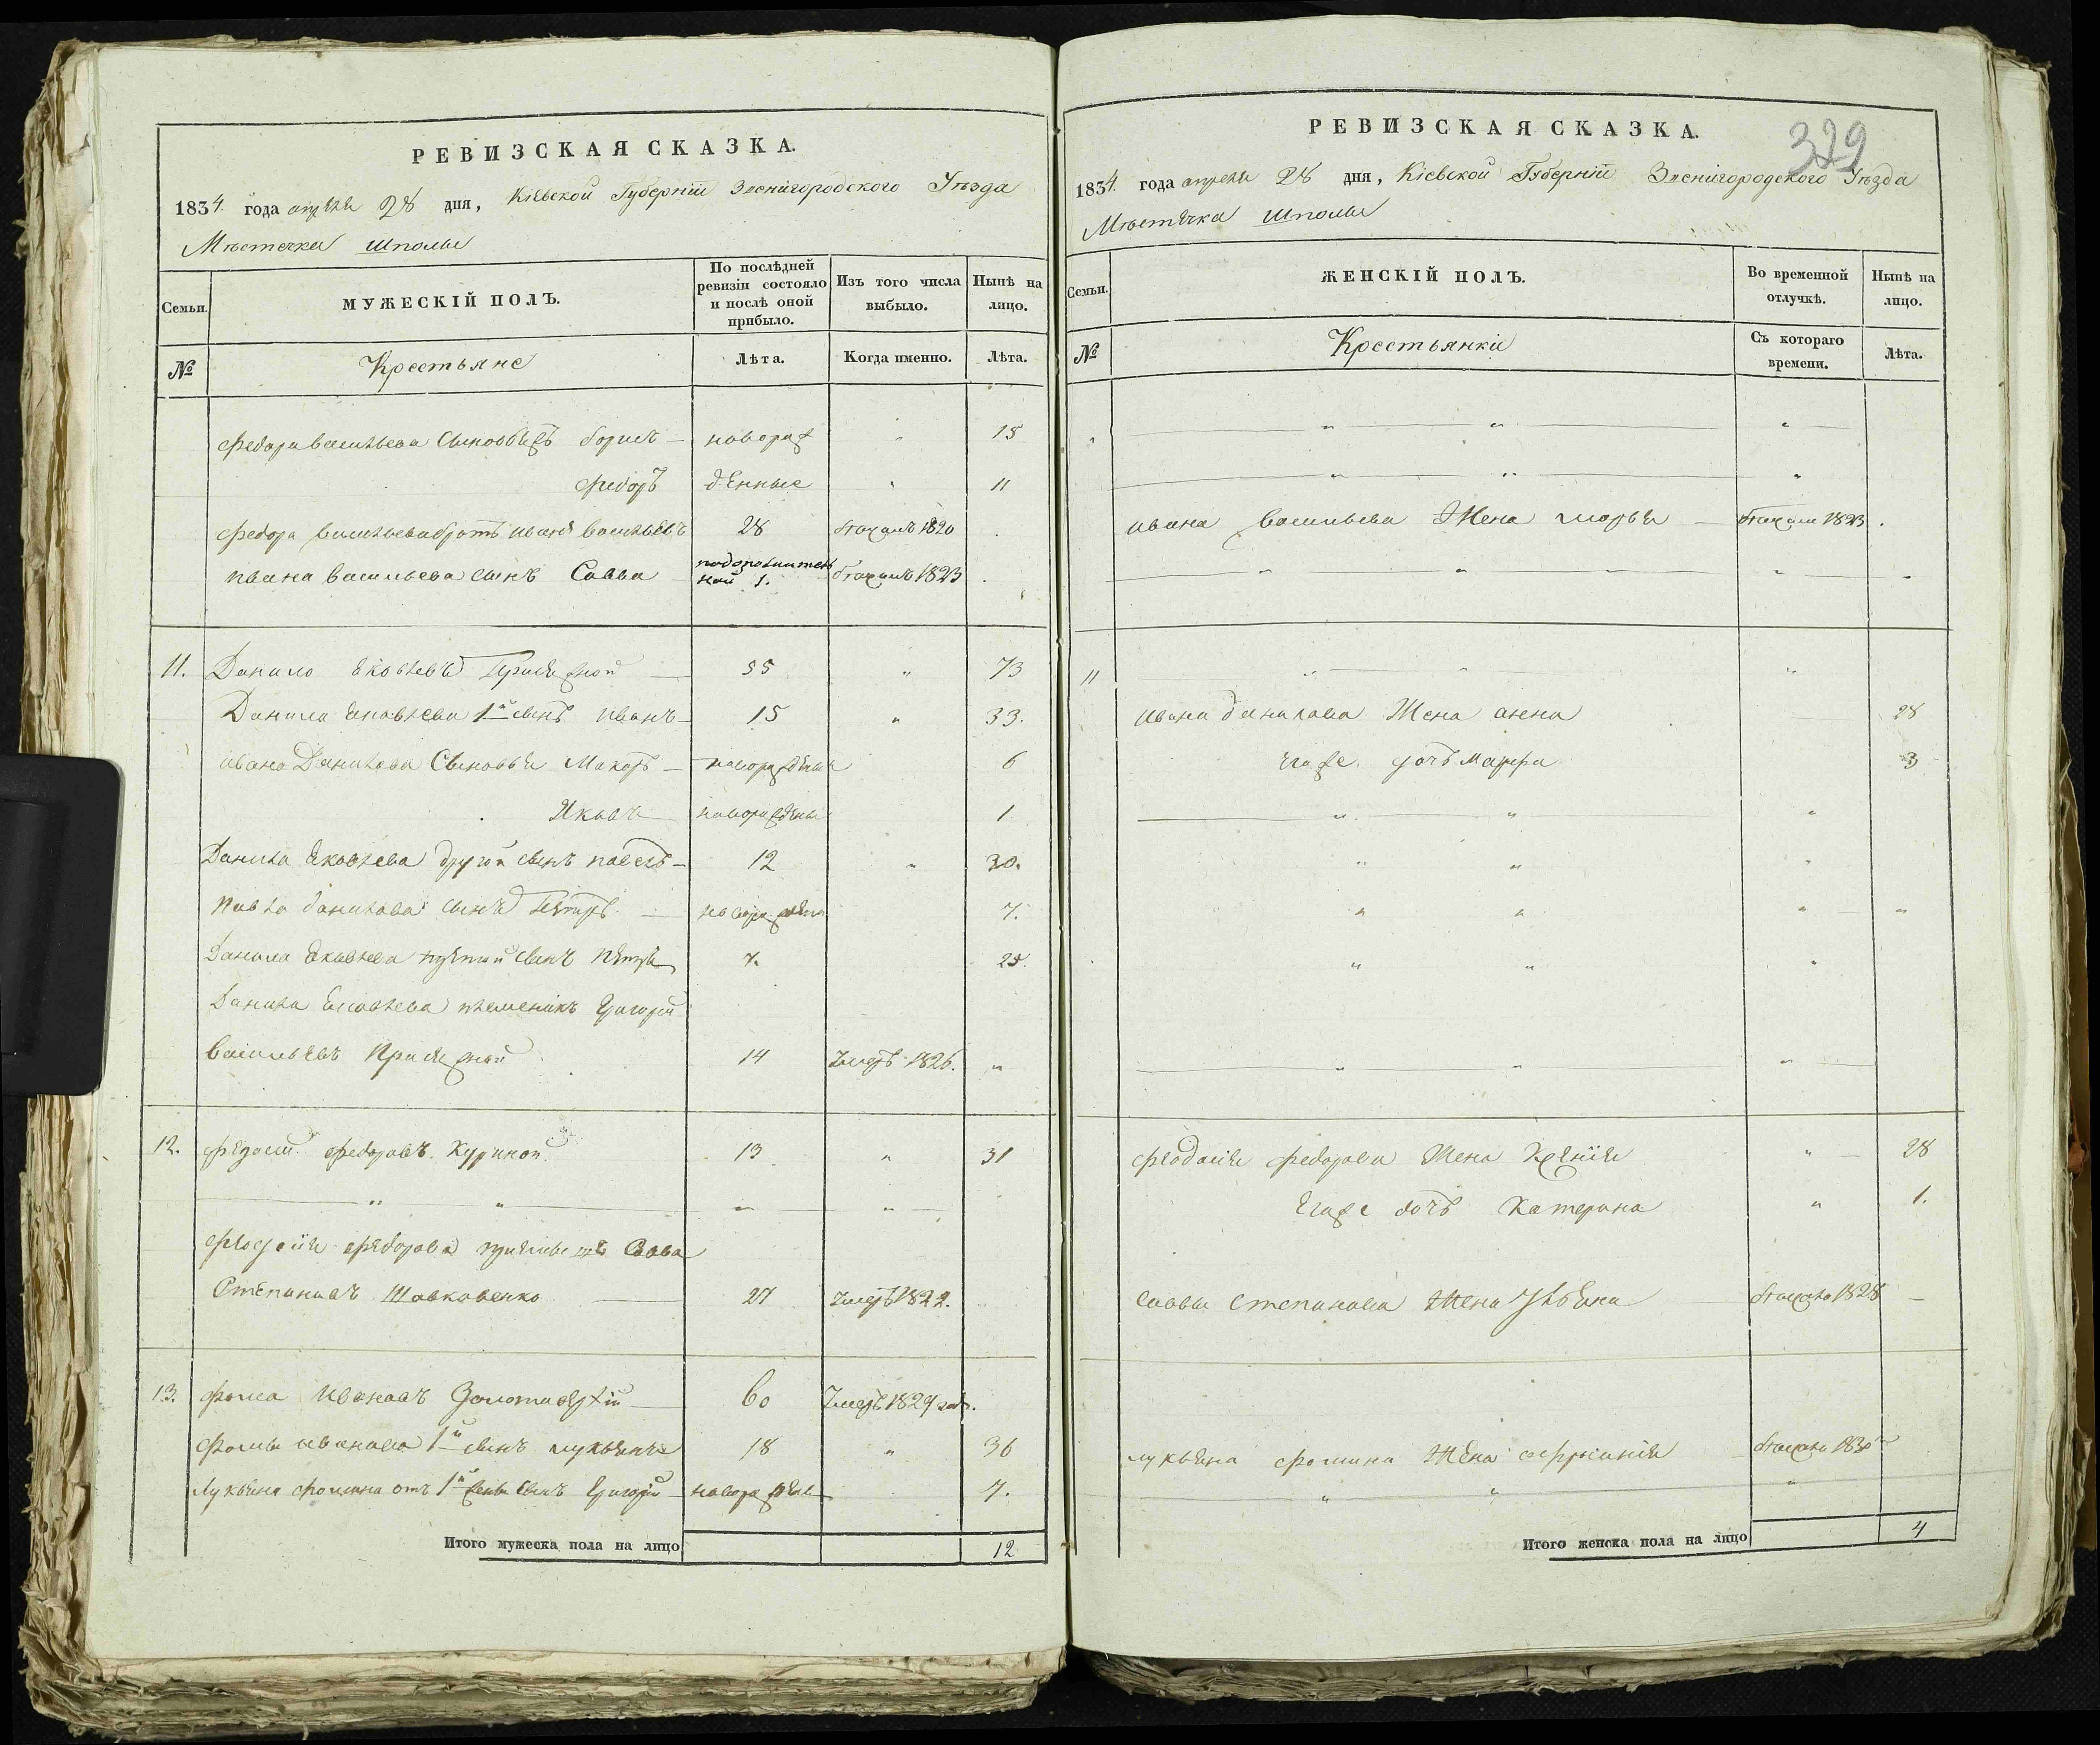 РЕВИЗСКАЯ СКАЗКА.
1834 года апреля 28 дня, Кіевской Губерніи Звенигородского Уѣзда
Мѣстечка Шполы
Семьи.
МУЖЕСКІЙ ПОЛЪ.
По послѣдней ревизіи состояло и послѣ оной прибыло.
Изъ того числа выбыло.
Нынѣ на лицо.
№
Крестьяне
Лѣта.
Когда именно.
Лѣта.
Федора Васильева сыновья Борисъ — новорож „ 15
Федоръ денные „ 11
Федора Васильева братъ Иванъ Васильевъ 28 1820
Ивана Васильева сынъ Савва 1. 1823
11. Данило Яковлевъ — 55 „ 73
Данила Яковлева 1й сынъ Иванъ — 15 „ 33.
Ивана Данилова Сыновья Макаръ — новорожденый 6
Яковъ новорожденый 1
Данила Яковлева другой сынъ Павелъ — 12 „ 30.
Павла Данилова сынъ Петръ — новорожденый 7.
Данила Яковлева третий сынъ Петръ 7. 25.
Данила Яковлева племеникъ Григорій
Васильевъ 14 Умеръ 1826. „
12. Федосій Федоровъ Куриной 13 „ 31
„ „ „ „
Феодосія Федорова Савва
Степановъ Шовковенко — 27 Умеръ 1822.
13. Фома Ивановъ — 60 Умеръ 1829 года.
Фомы Иванова 1й сынъ Лукьянъ 18 „ 36
Лукьяна Фомина отъ 1й жены сынъ Григорій новорожденый 7.
Итого мужеска пола на лицо 12
РЕВИЗСКАЯ СКАЗКА.
329
1834 года апреля 28 дня, Кіевской Губерніи Звенигородского Уѣзда
Мѣстечка Шполы
Семьи.
ЖЕНСКІЙ ПОЛЪ.
Во временной отлучкѣ.
Нынѣ на лицо.
№
Крестьянки
Съ котораго времени.
Лѣта.
„ „ „
„ „ „
Ивана Васильева Жена Марья — 1823
„ „ „
11 „ „ „
Ивана Данилова Жена 28
Егоже дочь Марфа 3
„ „ „
„ „ „
„ „ „ „
„ „ „
„ „ „
Феодосія Федорова Жена Ксенія „ 28
Егоже дочь Катерина „ 1.
Саввы Степанова Жена Ульяна 1828
Лукьяна Фомина Жена 1830
„ „ „
Итого женска пола на лицо 4